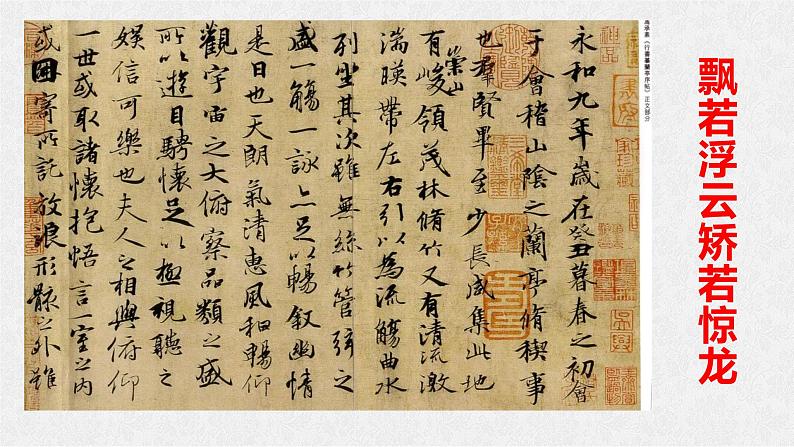 飘若浮云矫若惊龙
冯承素《行书摹兰亭序帖》正文部分
永和九年歲在癸丑暮春之初會
于會稽山陰之蘭亭脩稧事
也羣賢畢至少長咸集此地
有崇山峻領茂林脩竹又有清流激
湍暎帶左右引以為流觴曲水
列坐其次雖無絲竹管弦之
盛一觴一詠亦足以暢叙幽情
是日也天朗氣清惠風和暢仰
觀宇宙之大俯察品類之盛
所以遊目騁懷足以極視聽之
娛信可樂也夫人之相與俯仰
一世或取諸懷抱悟言一室之內
或因寄所託放浪形骸之外雖